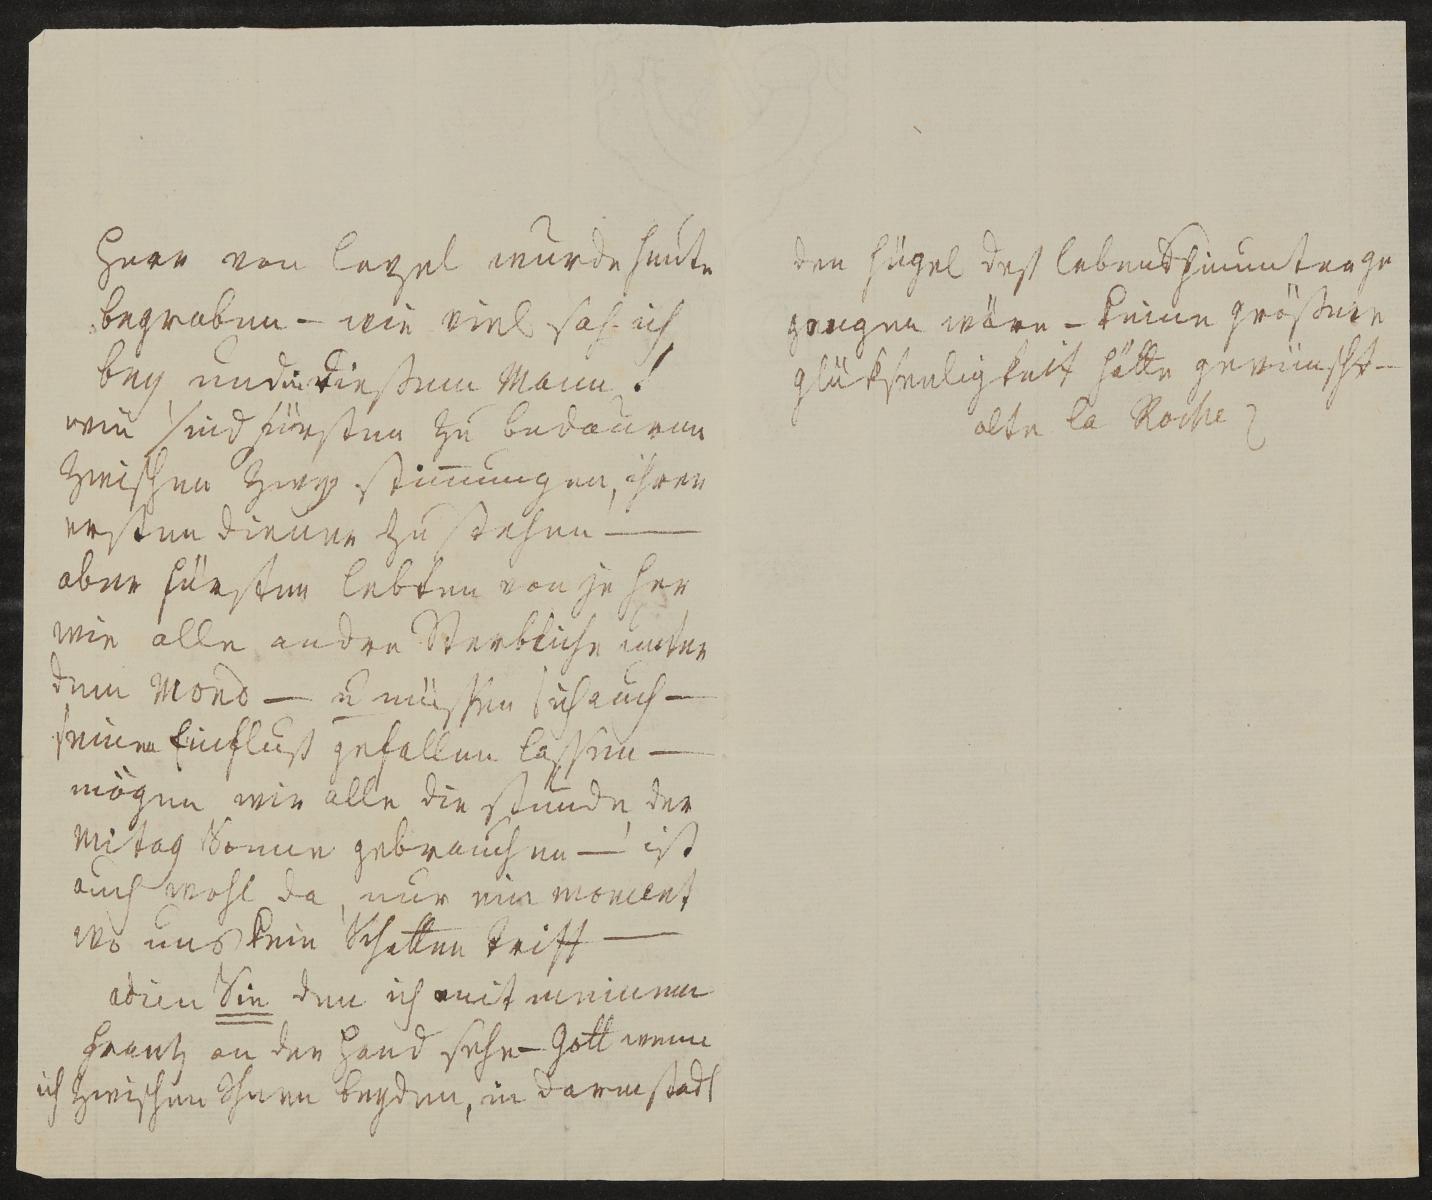 Herr von lezel wurde heute
begraben – wie viel sah ich
bey und in diesem Mann!
wie sind fürsten zu bedauren
zwischen zwey stim̄ungen, ihrer
ersten diener zu stehen —
aber fürsten lebten von je her
wie alle andre Sterbliche unter
dem Mond — u müssen sich auch —
seinen Einfluß gefallen lassen —
mögen wir alle die stunde der
Mitag Sonne gebrauchen — ist
auch wohl da, nur ein moment
wo uns kein Schatten trift —
adieu Sie den ich mit meinem
Frantz an der Hand sehe – Gott wenn
ich zwischen Ihnen beyden, in darmstadt
den hügel des lebens hinunter ge
gangen wäre – keine größere
glükseeligkeit hätte gewünscht –
alte la Roche